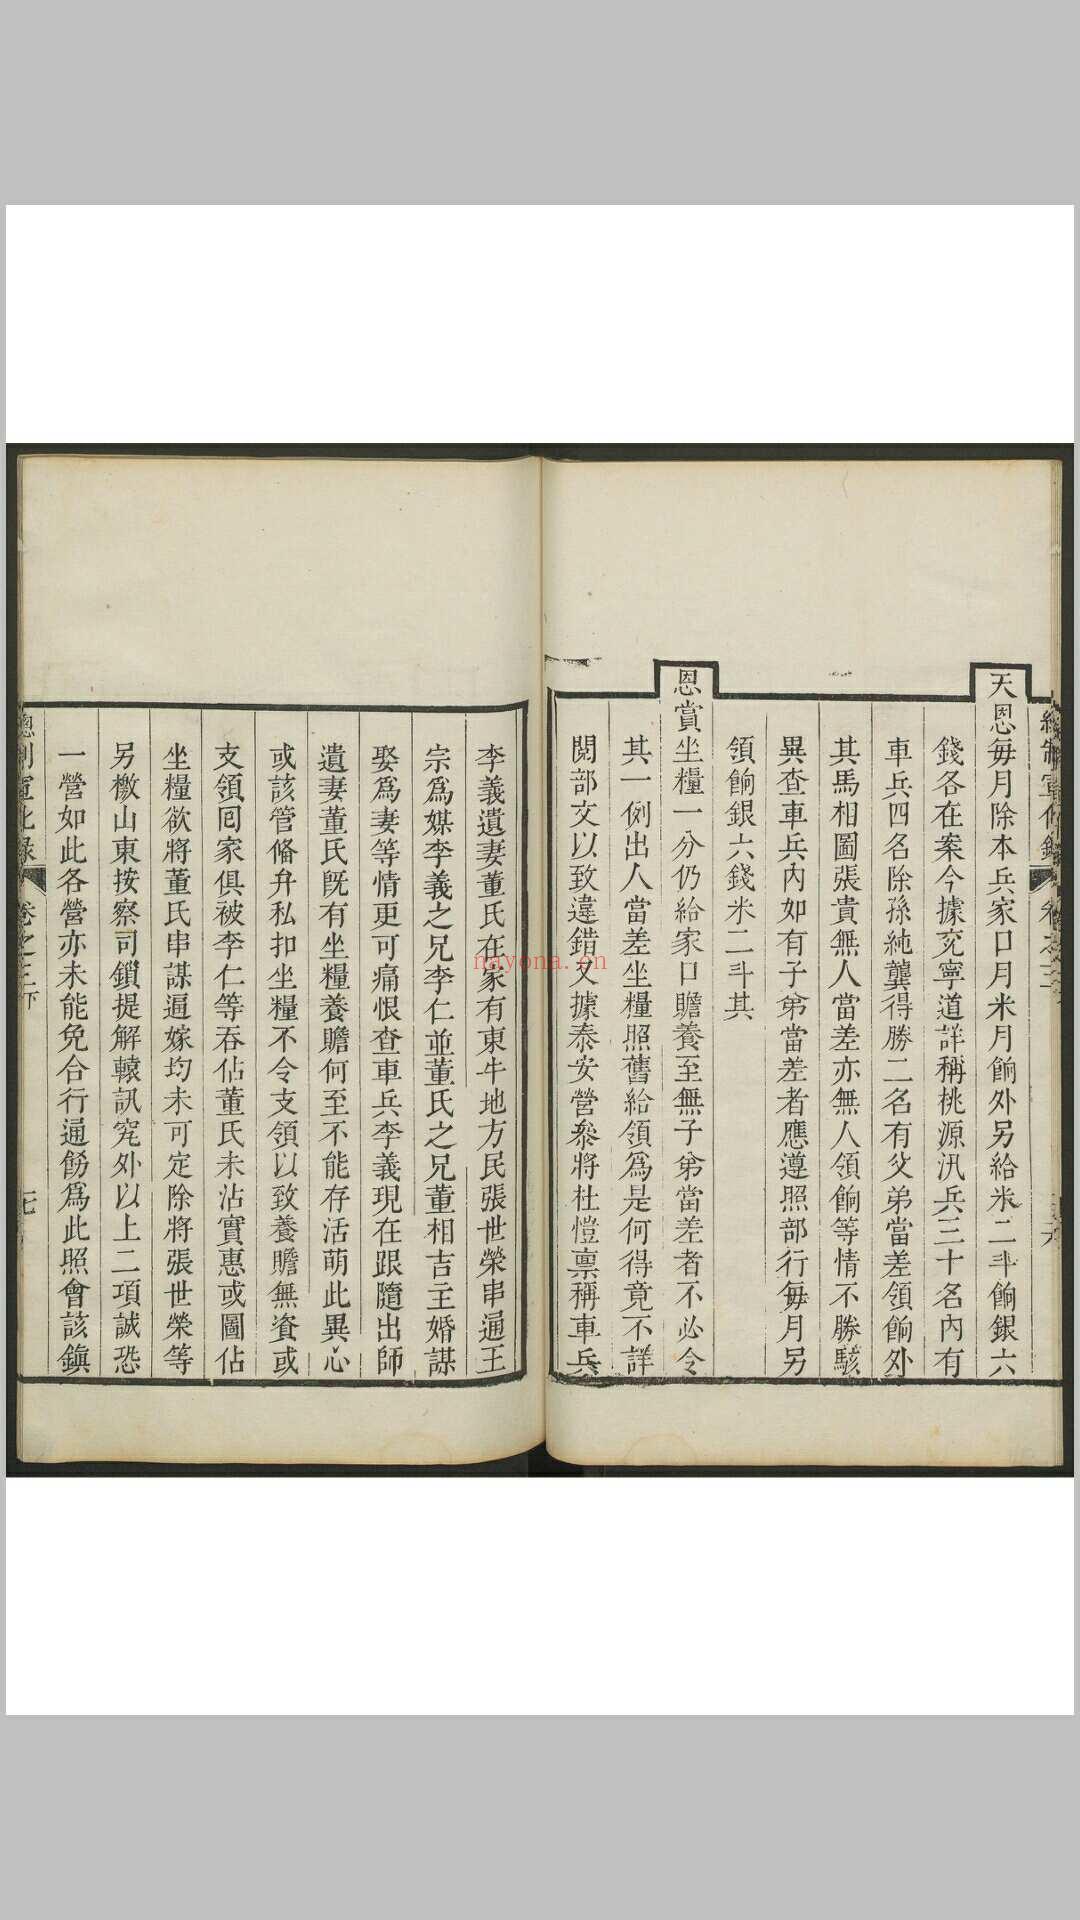 天恩每月除本兵家口月米月餉外另給米二斗餉銀六
錢各在案今據兗寧道詳稱桃源汛兵三十名內有
車兵四名除孫純龔得勝二名有父弟當差領餉外
其馬相圖張貴無人當差亦無人領餉等情不勝駭
異查車兵內如有子弟當差者應遵照部行每月另
領餉銀六錢米二斗其
恩賞坐糧一分仍給家口贍養至無子弟當差者不必令
其一例出人當差坐糧照舊給領爲是何得竟不詳
閱部文以致違錯又據泰安營參將杜愷禀稱車兵
李義遺妻董氏在家有東牛地方民張世榮串通王
宗爲媒李義之兄李仁並董氏之兄董相吉主婚謀
娶爲妻等情更可痛恨查車兵李義現在跟隨出師
遺妻董氏旣有坐糧養贍何至不能存活萌此異心
或該管偹弁私扣坐糧不令支領以致養贍無資或
支領囘家俱被李仁等吞佔董氏未沾實惠或圖佔
坐糧欲將董氏串謀逼嫁均未可定除將張世榮等
另檄山東按察司鎖提解轅訊究外以上二項誠恐
一營如此各營亦未能免合行通飭爲此照會該鎮
卷之三下
七
nayona.cn